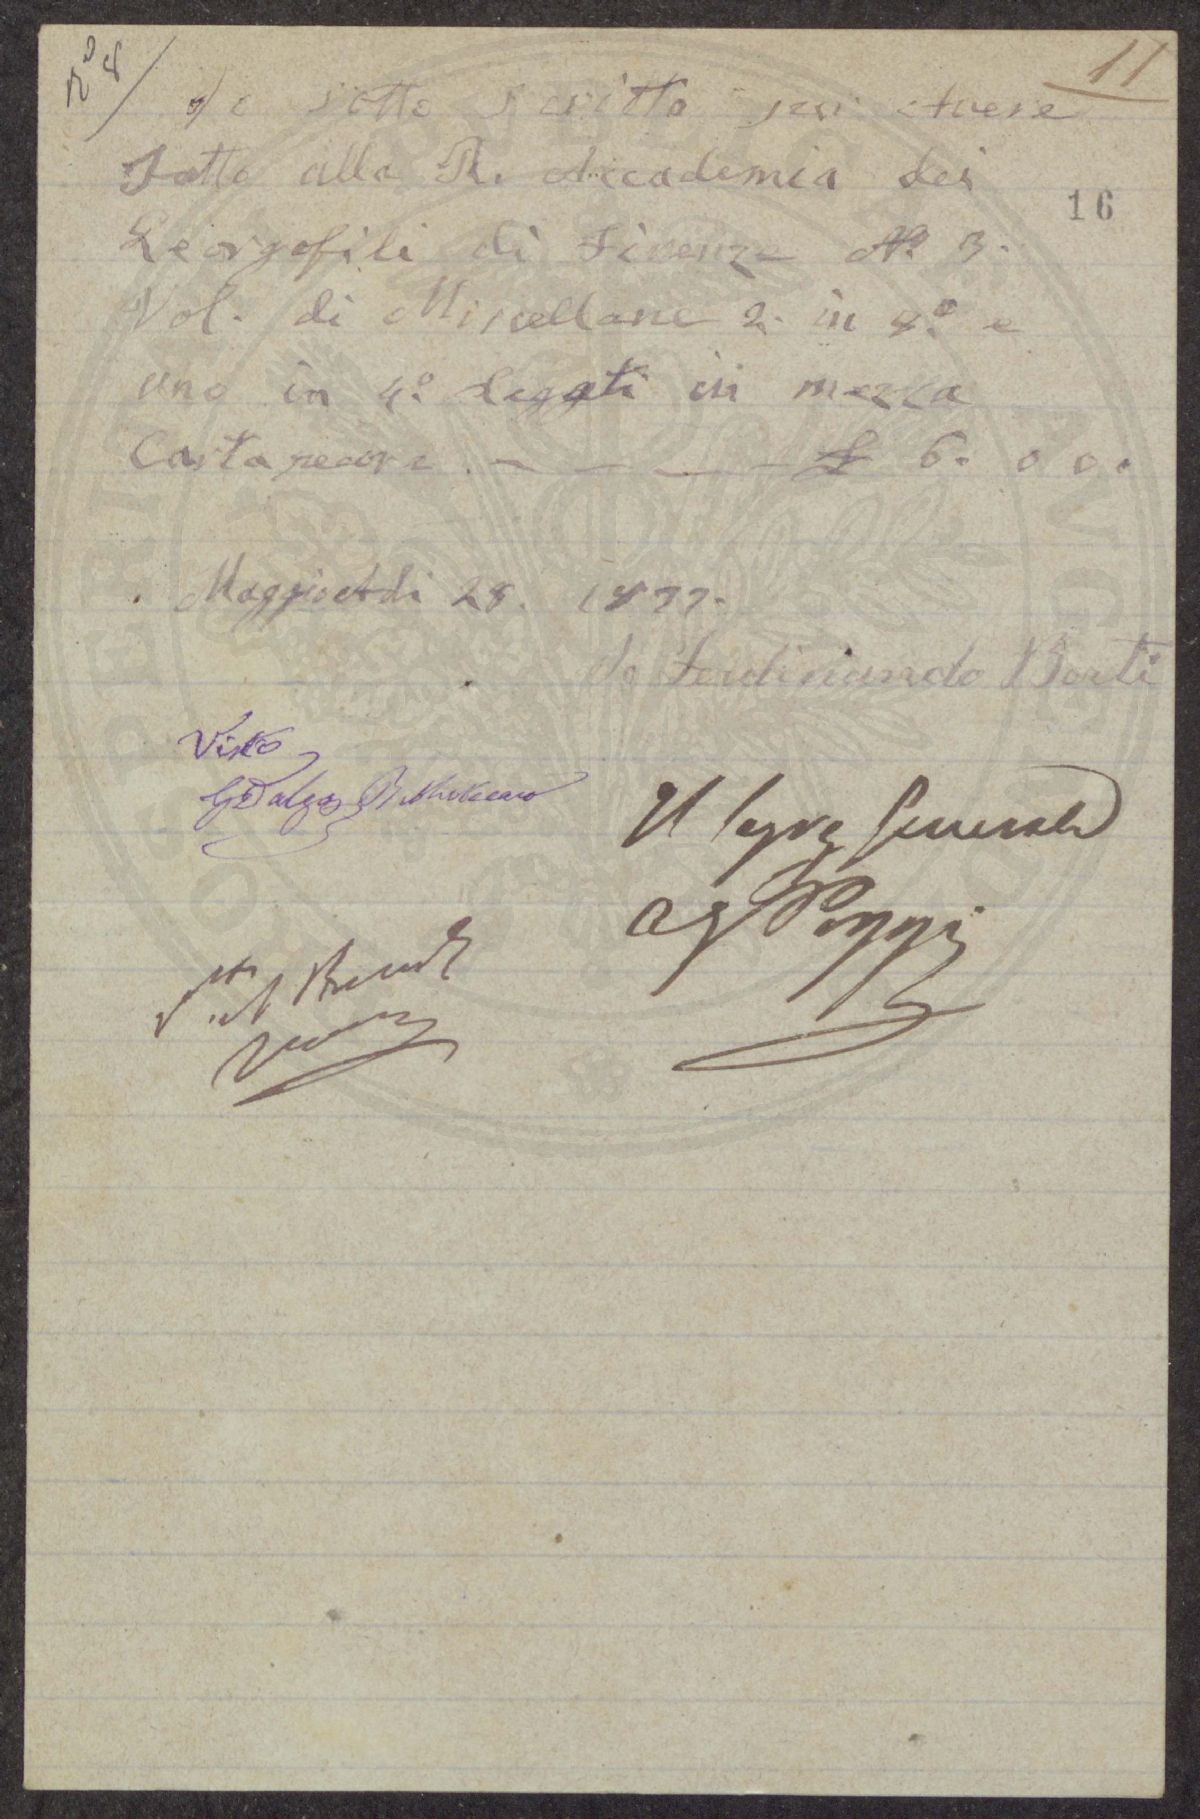 N° 8
11
Io sotto scritto per Avere
Fatto alla R. Accademia dei
Georgofili di Firenze N° 3.
Vol. di Miscellane 2. in 8.° e
uno in 4.° Legati in mezza
Cartapecora. £ 6. 00.
16
Maggio Adi 28. 1877.
Io Ferdinando Borti
Visto
G Dalgas Bibliotecario
Il Segrg Generale
Poggi